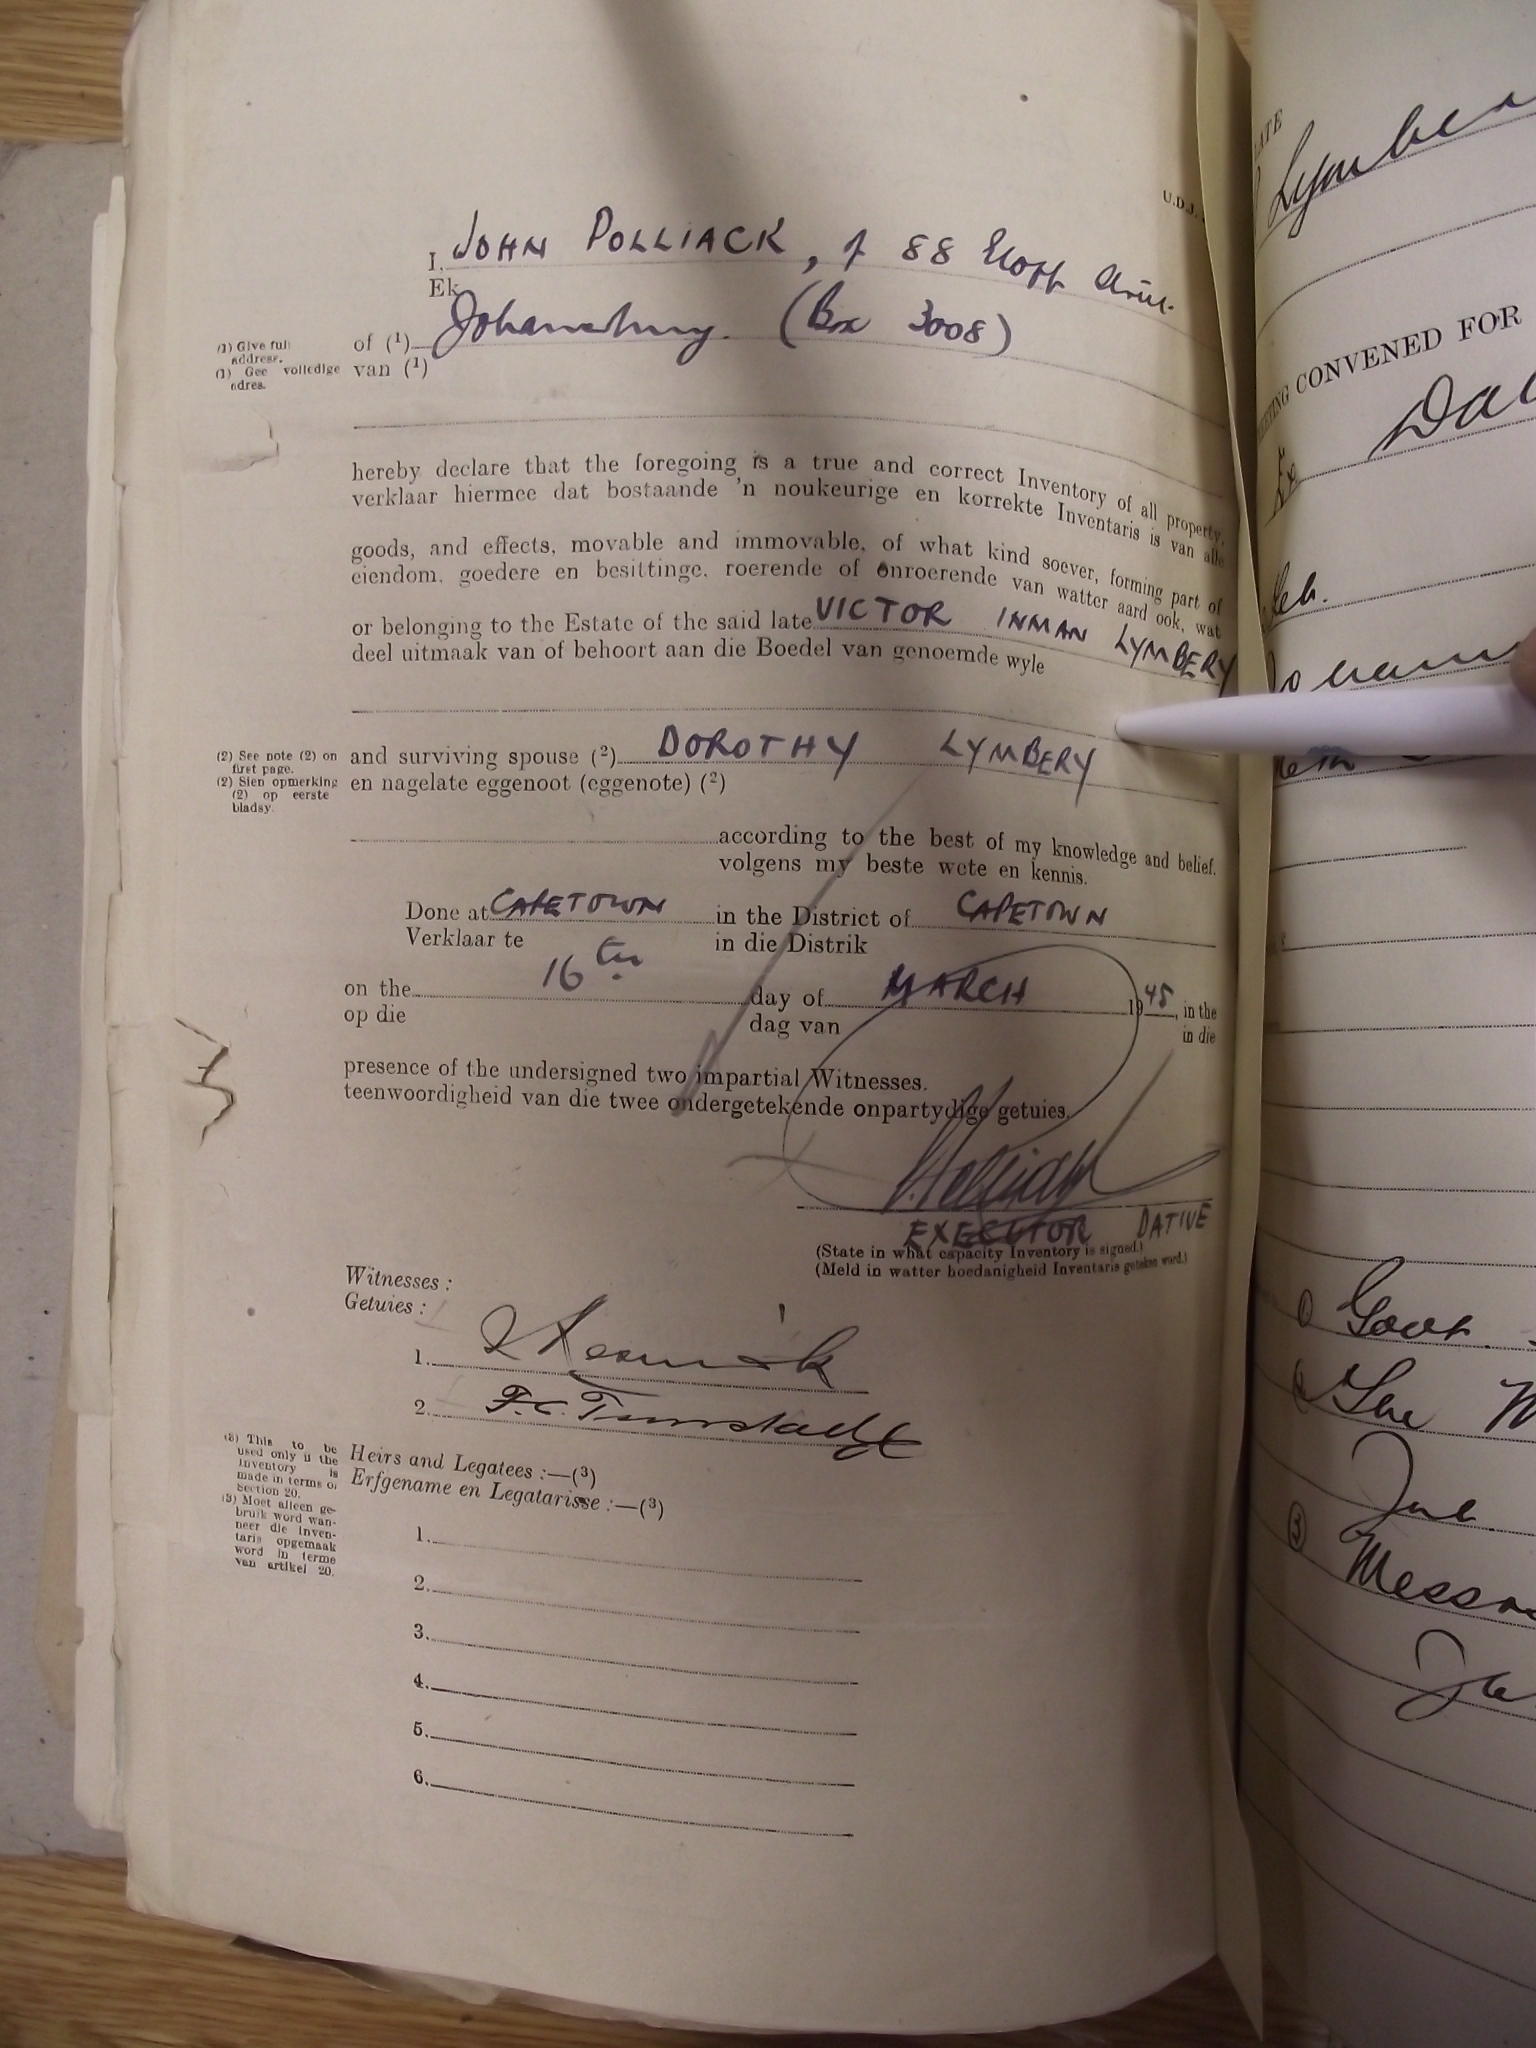 U.D.J.
I, JOHN POLLIACK, of 88 Eloff Street
Ek
(1) Give full address.
of (1) Johannesburg. (Box 3008)
(1) Gee volledige adres.
van (1)
hereby declare that the foregoing is a true and correct Inventory of all property,
verklaar hiermee dat bostaande 'n noukeurige en korrekte Inventaris is van alle
goods, and effects, movable and immovable, of what kind soever, forming part of
eiendom, goedere en besittinge, roerende of onroerende van watter aard ook, wat
or belonging to the Estate of the said late VICTOR INMAN LYMBERY
deel uitmaak van of behoort aan die Boedel van genoemde wyle
(2) See note (2) on first page.
and surviving spouse (2) DOROTHY LYMBERY
(2) Sien opmerking (2) op eerste bladsy.
en nagelate eggenoot (eggenote) (2)
according to the best of my knowledge and belief.
volgens my beste wete en kennis.
Done at CAPETOWN in the District of CAPETOWN
Verklaar te in die Distrik
on the 16th day of MARCH 1945, in the
op die dag van in die
presence of the undersigned two impartial Witnesses.
teenwoordigheid van die twee ondergetekende onpartydige getuies.
EXECUTOR DATIVE
(State in what capacity Inventory is signed.)
(Meld in watter hoedanigheid Inventaris geteken word.)
Witnesses :
Getuies :
1.
2. F.C.
(3) This to be
used only if the
Inventory is
made in terms of
Section 20.
(3) Moet alleen ge-
bruik word wan-
neer die Inven-
taris opgemaak
word in terme
van artikel 20.
Heirs and Legatees :—(3)
Erfgename en Legatarisse :—(3)
1.
2.
3.
4.
5.
6.
Lymbery
CONVENED FOR
1 Govt
The
3 Messrs